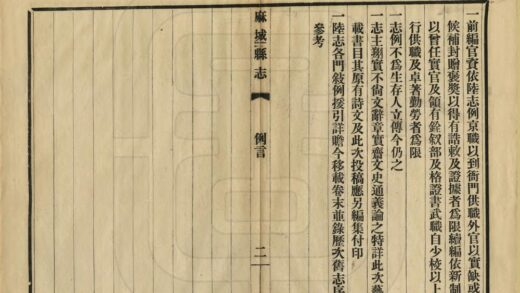 一前編官資依陸志例京職以到衙門供職外官以實缺或
候補封贈褒奬以得有誥敕及證據者爲限續編依新制
以曾任實官及領有銓叙部及格證書武職自少校以上
行供職及卓著勤勞者爲限
一志例不爲生存人立傳今仍之
一志主翔實不尙文辭章實齋文史通義論之特詳此次藝
載書目其原有詩文及此次投稿應另編集付印
一陸志各門敍例援引詳贍今移載卷末並錄歷次舊志序
參考
麻城縣志
例言
二